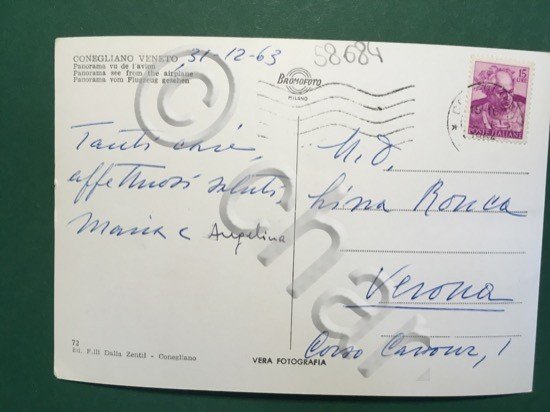 CONEGLIANO VENETO
Panorama vu de l'avion
Panorama see from the airplane
Panorama vom Flugzeug gesehen
31-12-63
58684
BROMOFOTO
MILANO
15
POSTE ITALIANE
Tanti cari,
affettuosi saluti,
Maria e Angelina
N. D.
Lina Ronca
Verona
Corso Cavour, 1
72
Ed. F.lli Dalla Zentil - Conegliano
VERA FOTOGRAFIA
© char